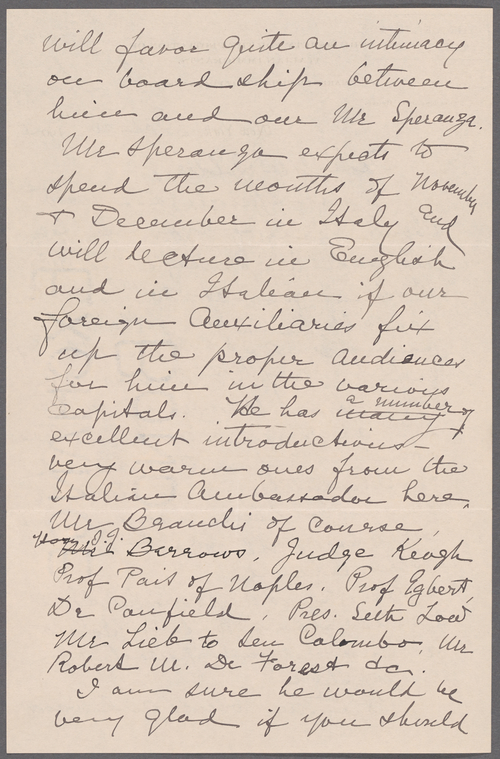 will favor quite an intimacy
on board ship between
him and our Mr Speranza.
Mr Speranza expects to
spend the months of November
& December in Italy and
will lecture in English
and in Italian if our
foreign Auxiliaries fix
up the proper audiences
for him in the various
Capitals. He has many a number of
excellent introductions –
very warm ones from the
Italian Ambassador here,
Mr Brandis of course,
Hon. S.J. Barrows, Judge Keogh
Prof Pais of Naples. Prof Egbert,
Dr Canfield, Pres. Seth Low
Mr Lieb to Sen Colombo, Mr
Robert W. De Forest &c.
I am sure he would be
very glad if you should